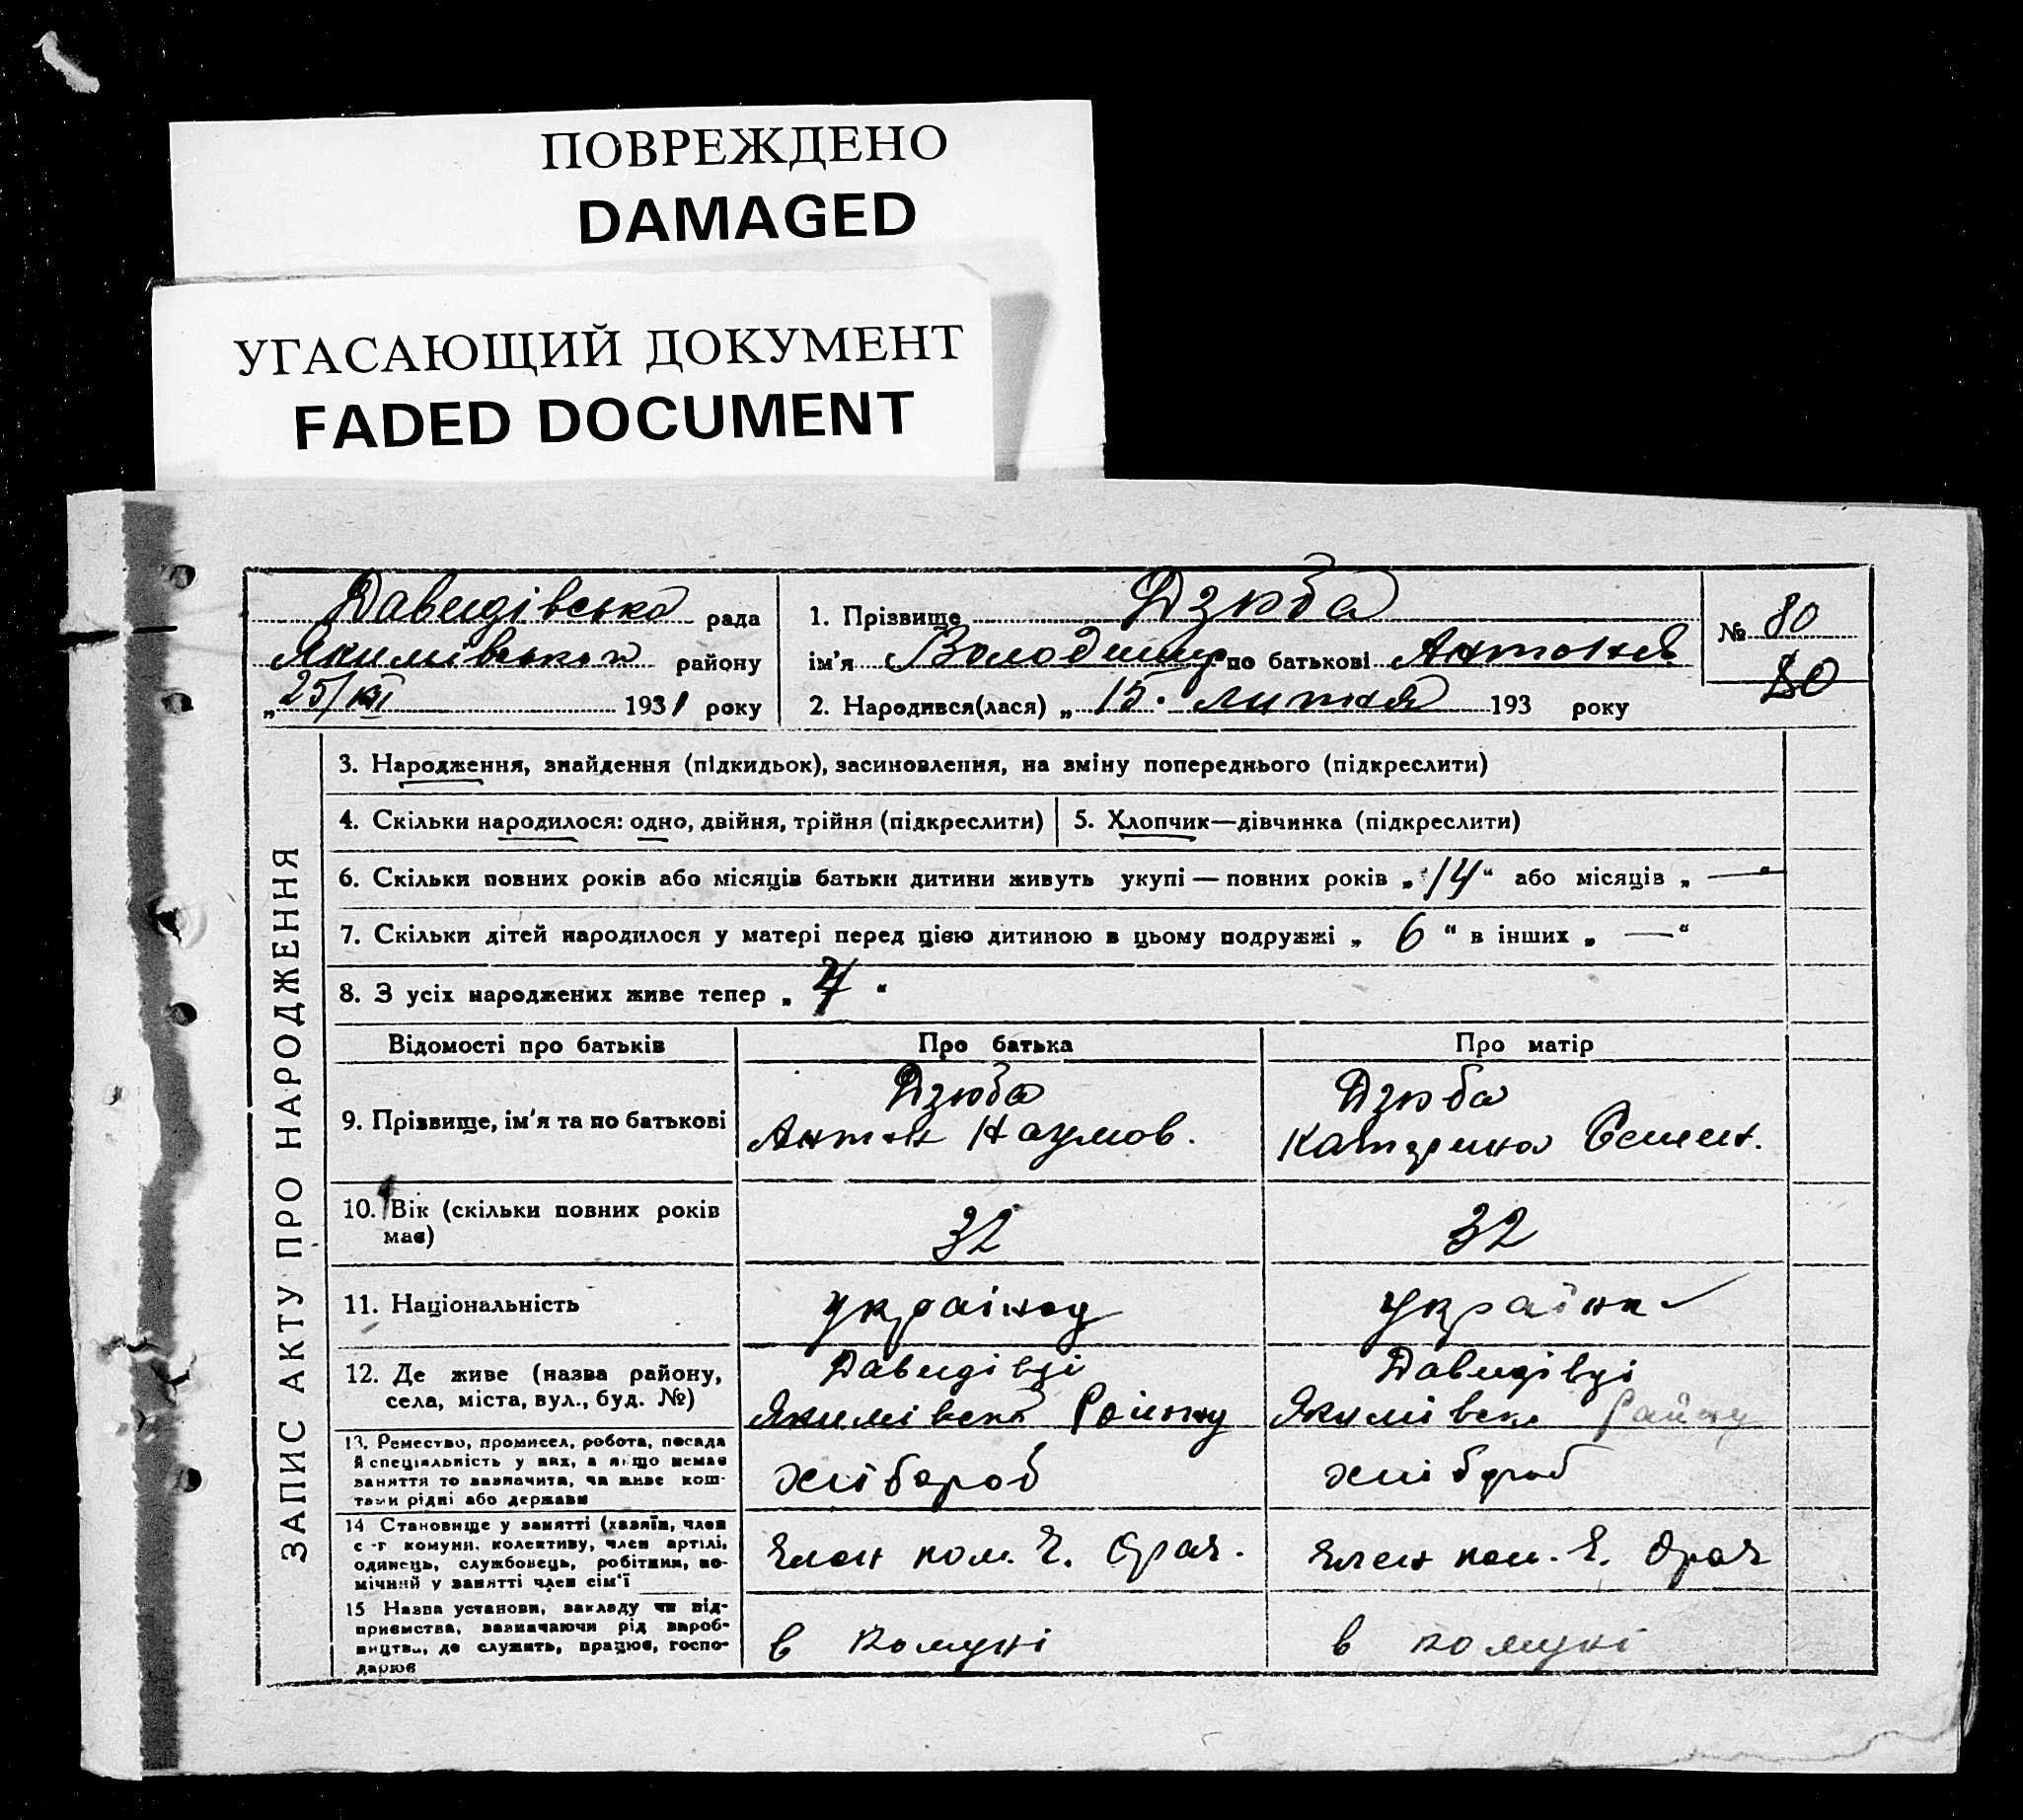 ПОВРЕЖДЕНО
DAMAGED
УГАСАЮЩИЙ ДОКУМЕНТ
FADED DOCUMENT
Давидівська рада
району
„25/ 1931 року
1. Прізвище Дзюба
ім'я Володимир по батькові Антонов
2. Народився(лася) „15. липня 193 року
№ 80
80
ЗАПИС АКТУ ПРО НАРОДЖЕННЯ
3. Народження, знайдення (підкидьок), засиновлення, на зміну попереднього (підкреслити)
4. Скільки народилося: одно, двійня, трійня (підкреслити)
5. Хлопчик—дівчинка (підкреслити)
6. Скільки повних років або місяців батьки дитини живуть укупі — повних років „14“ або місяців „—“
7. Скільки дітей народилося у матері перед цією дитиною в цьому подружжі „6“ в інших „—“
8. З усіх народжених живе тепер „ “
Відомості про батьків
Про батька
Про матір
9. Прізвище, ім'я та по батькові
Дзюба
Антон Наумов.
Дзюба
Катерина Семен.
10. Вік (скільки повних років
має)
32
32
11. Національність
українец
українк
12. Де живе (назва району,
села, міста, вул., буд. №)
Давидівці
Якимівськ Району
Давидівці
Якимівськ Району
13. Ремество, промисел, робота, посада
й спеціяльність у них, а якщо немає
заняття то зазначити, чи живе кош-
тами рідні або держави
хлібороб
хлібороб
14 Становище у занятті (хазяїн, член
с-г комуни, колективу, член артілі,
одинець, службовець, робітник, по-
мічний у занятті член сім'ї
Член ком. Ч.
член ком. Ч.
15 Назва установи, закладу чи під-
приємства, зазначаючи рід вироб-
ництва, де служить, працює, госпо-
дарює
в комуні
в комуні